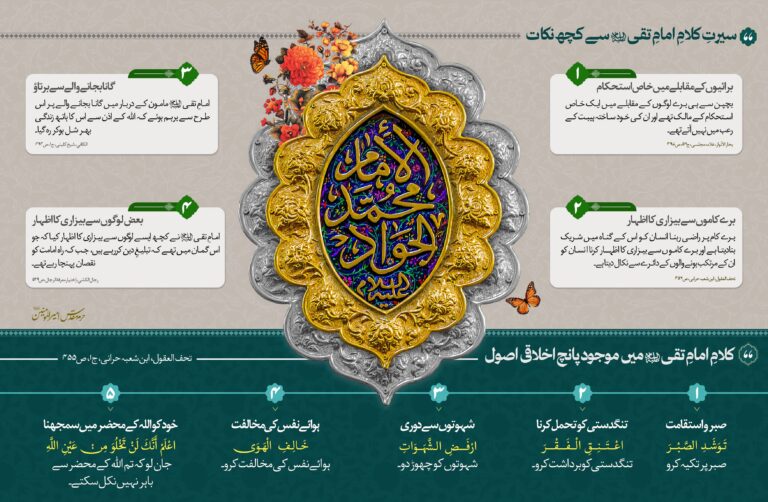 سیرتِ کلامِ امامِ تقی ؑ سے کچھ نکات
۱
برائیوں کے مقابلے میں خاص استحکام
بچپن سے ہی برے لوگوں کے مقابلے میں ایک خاص
استحکام کے مالک تھے اور ان کی خود ساختہ ہیبت کے
رعب میں نہیں آتے تھے۔
۲
برے کاموں سے بیزاری کا اظہار
برے کام پر راضی رہنا انسان کو اس کے گناہ میں شریک
بنا دیتا ہے اور برے کاموں سے بیزاری کا اظہار کرنا انسان کو
ان کے مرتکب ہونے والوں کے دائرے سے نکال دیتا ہے۔
تحف العقول، ابن شعبہ حرانی، ص
۳
گانا بجانے والے سے برتاؤ
امام تقی ؑ مامون کے دربار میں گانا بجانے والے پر اس
طرح سے برہم ہوئے کہ اللہ کے اذن سے اس کا ہاتھ زندگی
بھر شل ہو کر رہ گیا۔
الکافی، شیخ کلینی، ج۱، ص
۴
بعض لوگوں سے بیزاری کا اظہار
امام تقی ؑ نے کچھ ایسے لوگوں سے بیزاری کا اظہار کیا کہ جو
اس گمان میں تھے کہ تبلیغِ دین کر رہے ہیں، جب کہ راہِ امامت کو
نقصان پہنچا رہے تھے۔
الإمام
محمد
الجواد
علیه السلام
کلامِ امامِ تقی ؑ میں موجود پانچ اخلاقی اصول
تحف العقول، ابن شعبہ حرانی، ج۱، ص۴۵۵
۱
صبر و استقامت
تَوَسَّدِ الصَّبْرَ
صبر پر تکیہ کرو
۲
تنگدستی کو تحمل کرنا
اعْتَنِقِ الْفَقْرَ
تنگدستی کو برداشت کرو۔
۳
شہوتوں سے دوری
ارْفَضِ الشَّهَوَاتِ
شہوتوں کو چھوڑ دو۔
۴
ہوائے نفس کی مخالفت
خَالِفِ الْهَوَى
ہوائے نفس کی مخالفت کرو۔
۵
خود کو اللہ کے محضر میں سمجھنا
اعْلَمْ أَنَّكَ لَنْ تَخْلُوَ مِنْ عَيْنِ اللَّهِ
جان لو کہ تم اللہ کے محضر سے
باہر نہیں نکل سکتے۔